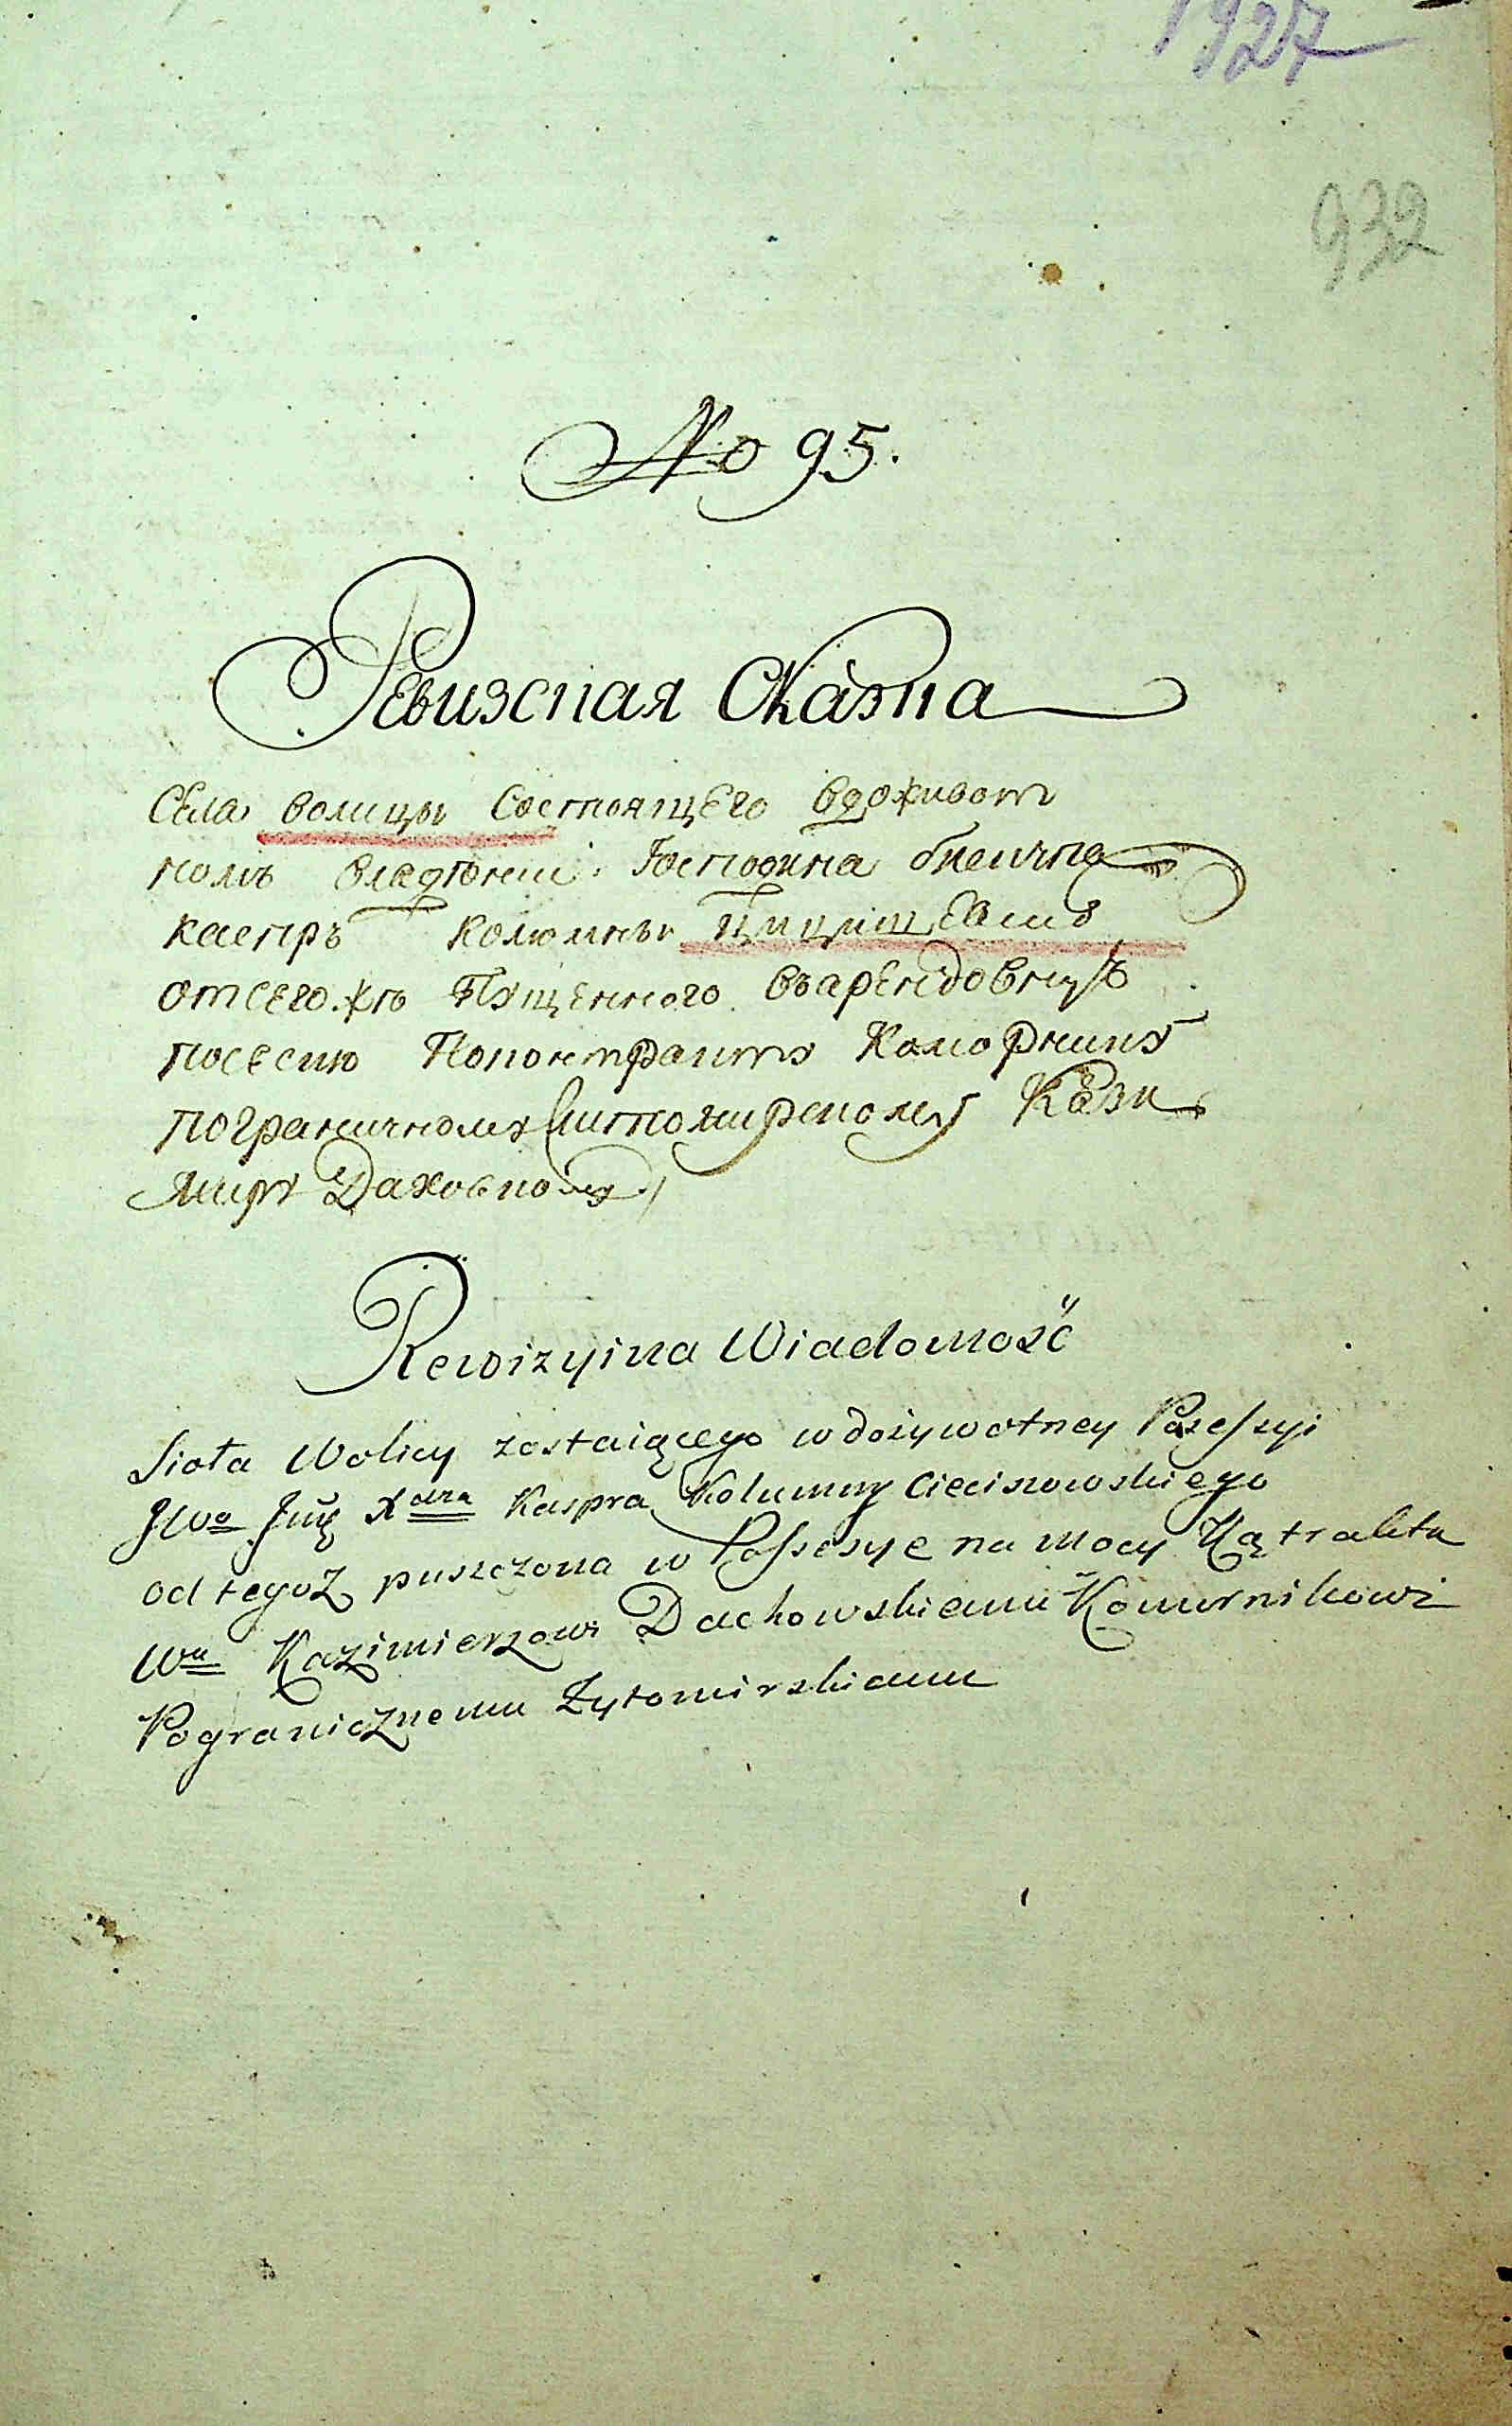 1927
932
No 95.
Ревизская Сказка
Села волицы Состоящего вдоживот
номъ владѣнии Господина бискупа
каспръ колюмны Цицишевски
отсегожъ Пущенного въарендовную
посесию Поконтракту Коморнику
пограничному Житомирскому Кази
миру Даховскому
Rewizyina Wiadomość
Sioła Wolicy zostaiącego w dożywotney Possessyi
JWo Jmę Xdza Kaspra Kolumny Cieciszowskiego
od tegoż puszczona w Possesye na mocy Kątraktu
Wu Kazimierzowi Dachowskiemu Komornikowi
Pogranicznemu Żytomirskiemu